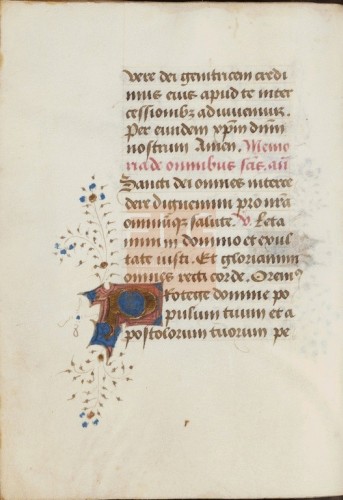 vere dei genitricem credi
mus eius apud te inter
cessionibꝫ adiuuemur.
Per eundem xp̄m dn̄m
nostrum Amen. Memo
ria de omnibus sc̄is. an̄
Sancti dei omnes interce
dere dignemini pro nr̄a
omniūqꝫ salute. v. Leta
mini in domino et exul
tate iusti. Et gloriamini
omnes recti corde. Oremꝰ
Protege domine po
pulum tuum et a
postolorum tuorum pe